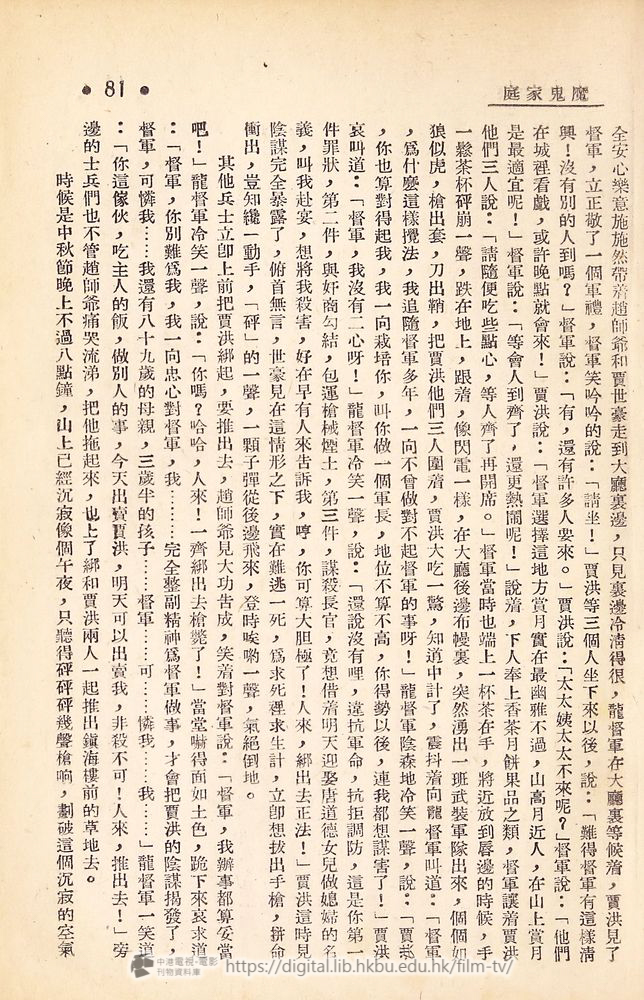 魔鬼家庭
• 81 •
全安心樂意施施然帶着趙師爺和賈世豪走到大廳裏邊，只見裏邊冷淸得很，龍督軍在大廳裏等候着，賈洪見了
督軍，立正敬了一個軍禮，督軍笑吟吟的說：「請坐！」賈洪等三個人坐下來以後，說：「難得督軍有這樣淸
興！沒有別的人到嗎？」督軍說：「有，還有許多人要來。」賈洪說：「太太姨太太不來呢？」督軍說：「他們
在城裡看戲，或許晚點就會來！」賈洪說：「督軍選擇這地方賞月實在最幽雅不過，山高月近人，在山上賞月
是最適宜呢！」督軍說：「等會人到齊了，還更熱鬧呢！」說着，下人奉上香茶月餅果品之類，督軍讓着賈洪
他們三人說：「請隨便吃些點心，等人齊了再開席。」督軍當時也端上一杯茶在手，將近放到唇邊的時候，手
一鬆茶杯砰崩一聲，跌在地上，跟着，像閃電一樣，在大廳後邊布幔裏，突然湧出一班武裝軍隊出來，個個如
狼似虎，槍出套，刀出鞘，把賈洪他們三人圍着，賈洪大吃一驚，知道中計了，震抖着向龍督軍叫道：「督軍
，爲什麽這樣攪法，我追隨督軍多年，一向不曾做對不起督軍的事呀！」龍督軍陰森地冷笑一聲，說：「賈洪
，你也算對得起我，我一向栽培你，叫你做一個軍長，地位不算不高，你得勢以後，連我都想謀害了！」賈洪
哀叫道：「督軍，我沒有二心呀！」龍督軍冷笑一聲，說：「還說沒有哩，違抗軍命，抗拒調防，這是你第一
件罪狀，第二件，與奸商勾結，包運槍械煙土，第三件，謀殺長官，竟想借着明天迎娶唐道德女兒做媳婦的名
義，叫我赴宴，想將我殺害，好在早有人來告訴我，哼，你可算大胆極了！人來，綁出去正法！」賈洪這時見
陰謀完全暴露了，俯首無言，世豪見在這情形之下，實在難逃一死，爲求死裡求生計，立卽想拔出手槍，拼命
衝出，豈知纔一動手，「砰」的一聲，一顆子彈從後邊飛來，登時唉喲一聲，氣絕倒地。
其他兵士立卽上前把賈洪綁起，要推出去，趙師爺見大功告成，笑着對督軍說：「督軍，我辦事都算妥當
吧！」龍督軍冷笑一聲，說：「你嗎？哈哈，人來！一齊綁出去槍斃了！」當堂嚇得面如土色，跪下來哀求道
：「督軍，你別難爲我，我一向忠心對督軍，我………完全整副精神爲督軍做事，才會把賈洪的陰謀揭發了，
督軍，可憐我……我還有八十九歲的母親，三歲半的孩子……督軍……可……憐我……我……」龍督軍一笑道
：「你這傢伙，吃主人的飯，做別人的事，今天出賣賈洪，明天可以出賣我，非殺不可！人來，推出去！」旁
邊的士兵們也不管趙師爺痛哭流涕，把他拖起來，也上了綁和賈洪兩人一起推出鎭海樓前的草地去。
時候是中秋節晚上不過八點鐘，山上已經沉寂像個午夜，只聽得砰砰砰幾聲槍响，劃破這個沉寂的空氣
中港電視·電影
刊物資料庫
https://digital.lib.hkbu.edu.hk/film-tv/